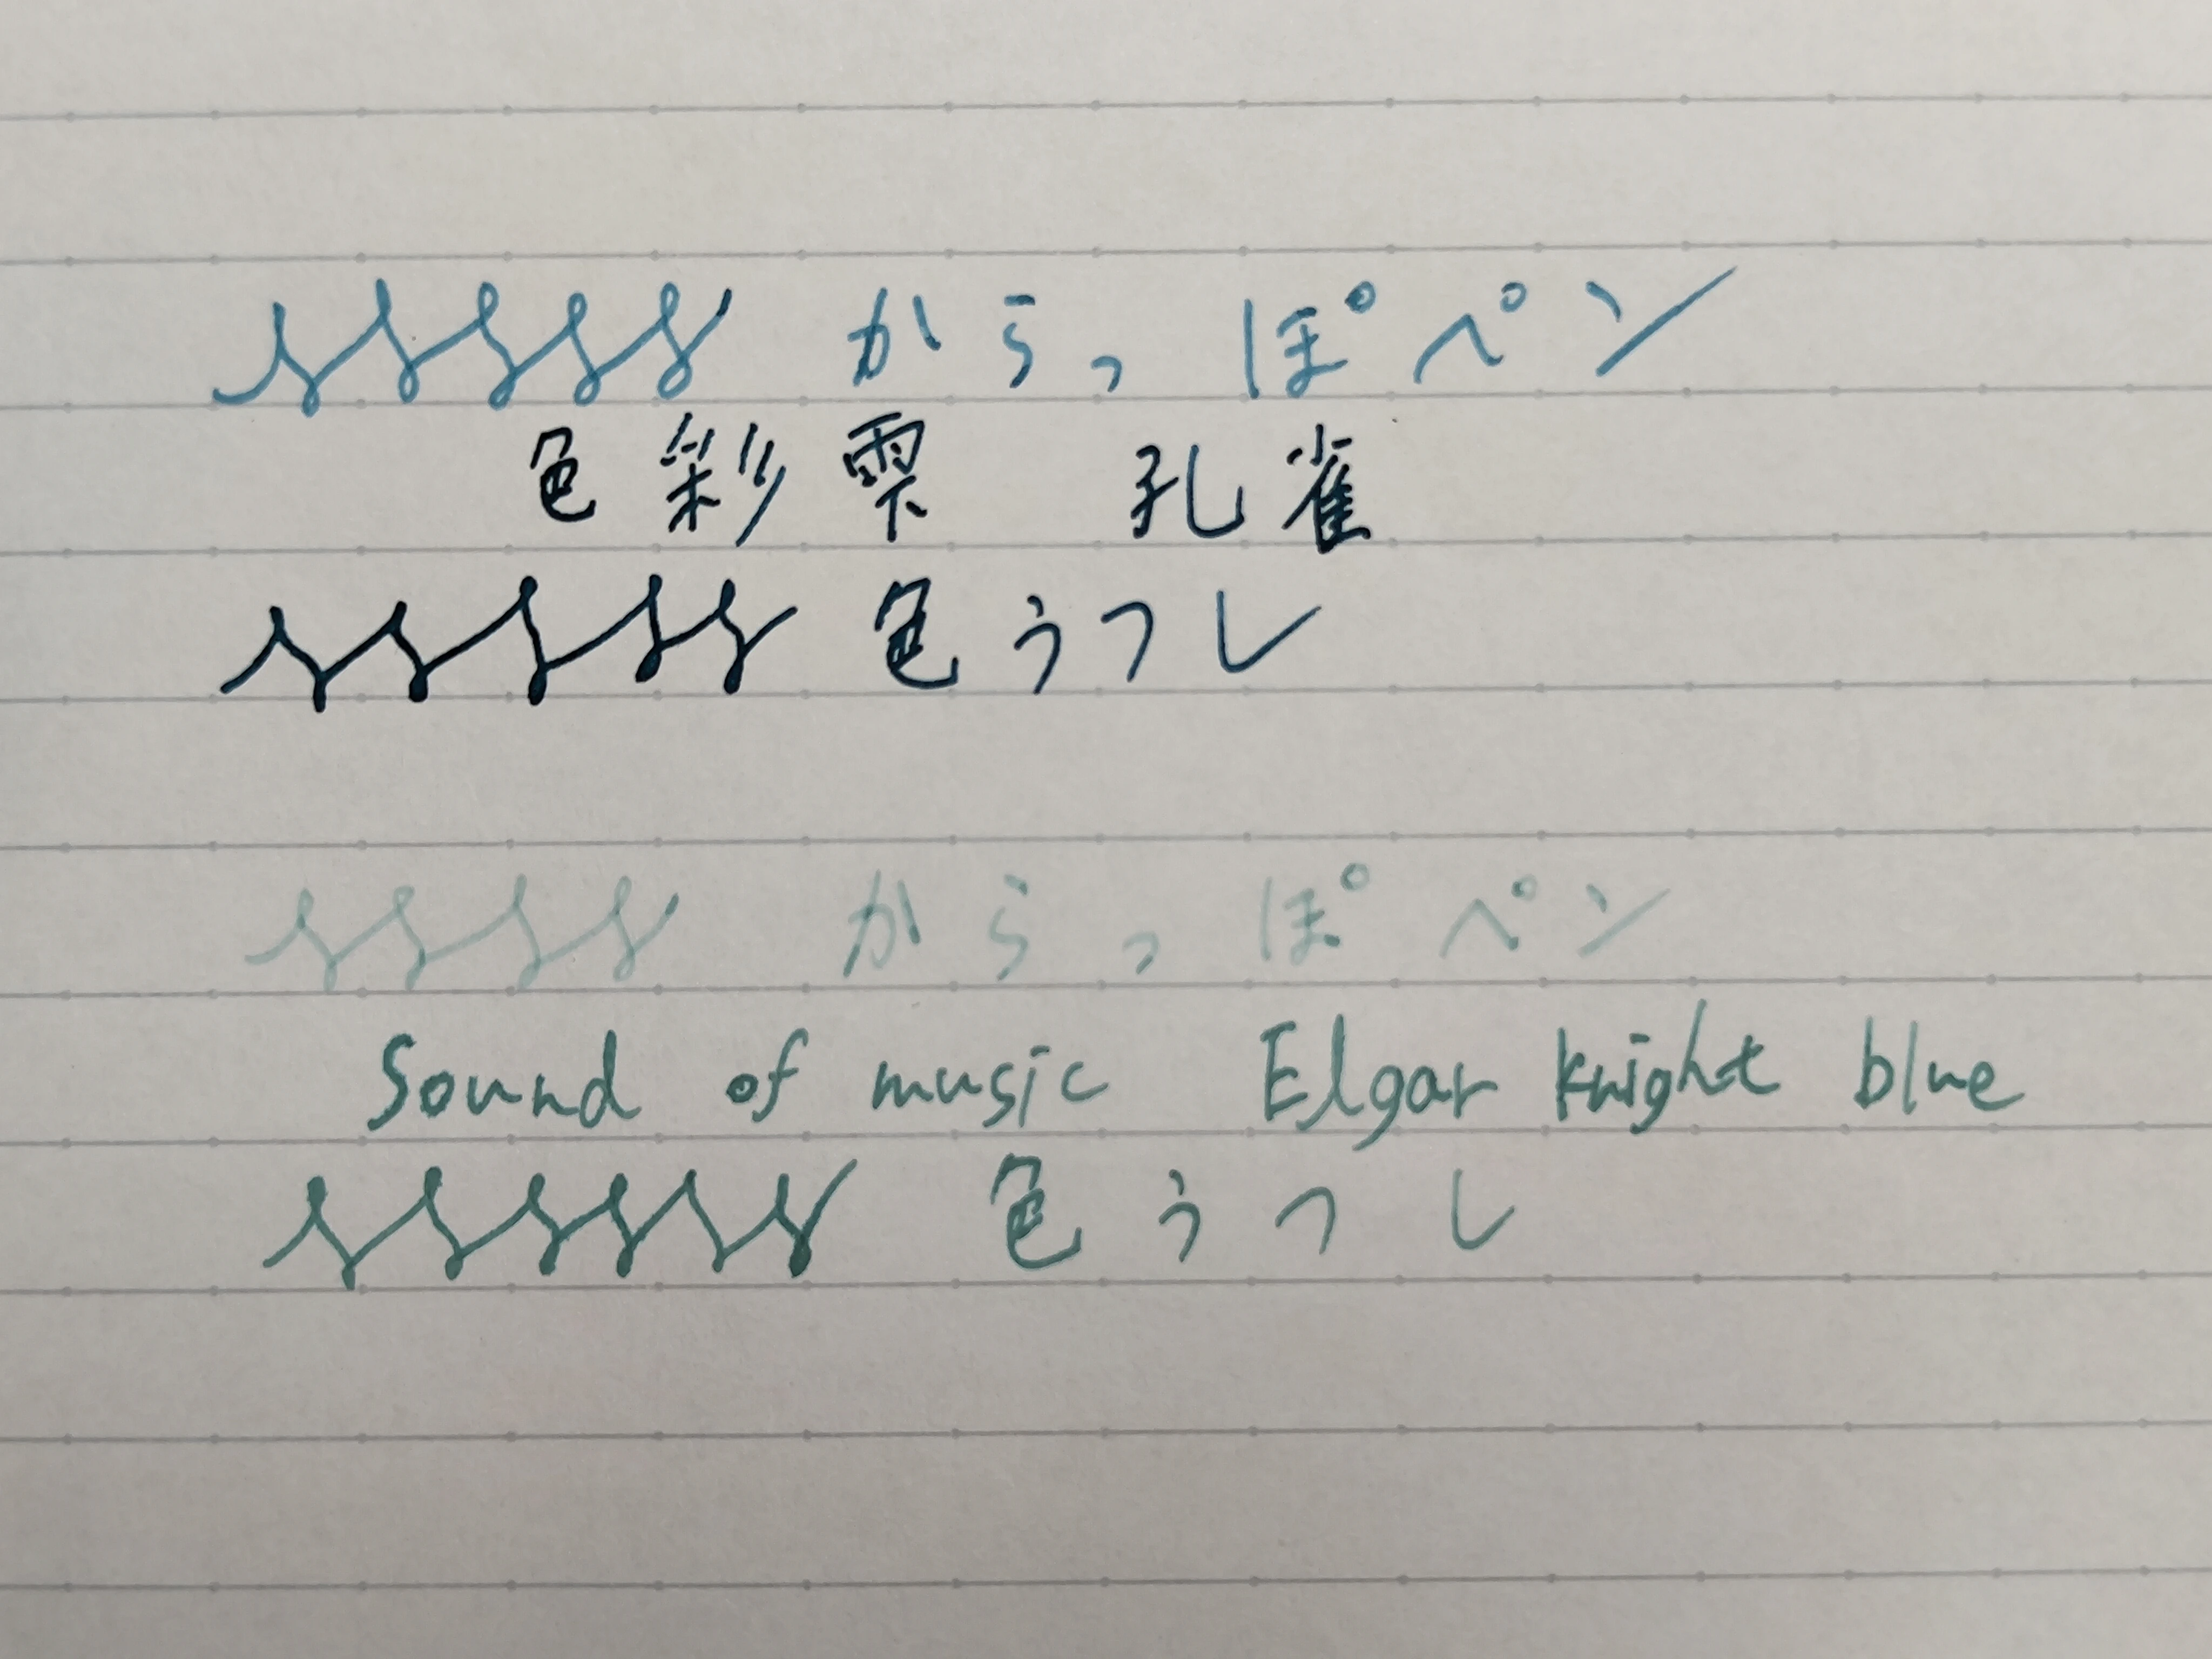 からっぽペン
色彩雫 孔雀
色うつし
からっぽペン
Sound of music Elgar knight blue
色うつし